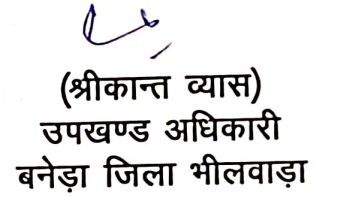 (श्रीकान्त व्यास)
उपखण्ड अधिकारी
बनेड़ा जिला भीलवाड़ा